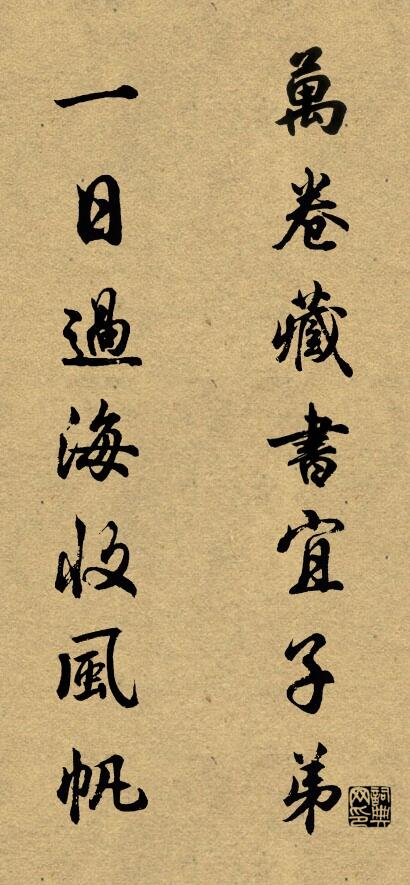 萬卷藏書宜子弟
一日過海收風帆
詞典網印